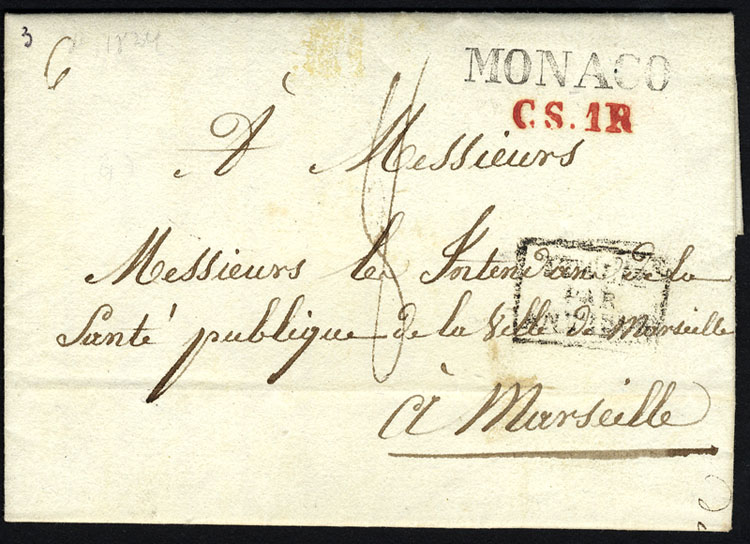 3
1824
6
MONACO
C.S. 1R
À Messieurs
Messieurs les Intendans de la
Santé publique de la Ville de Marseille
à Marseille
PAR
ANTIBES